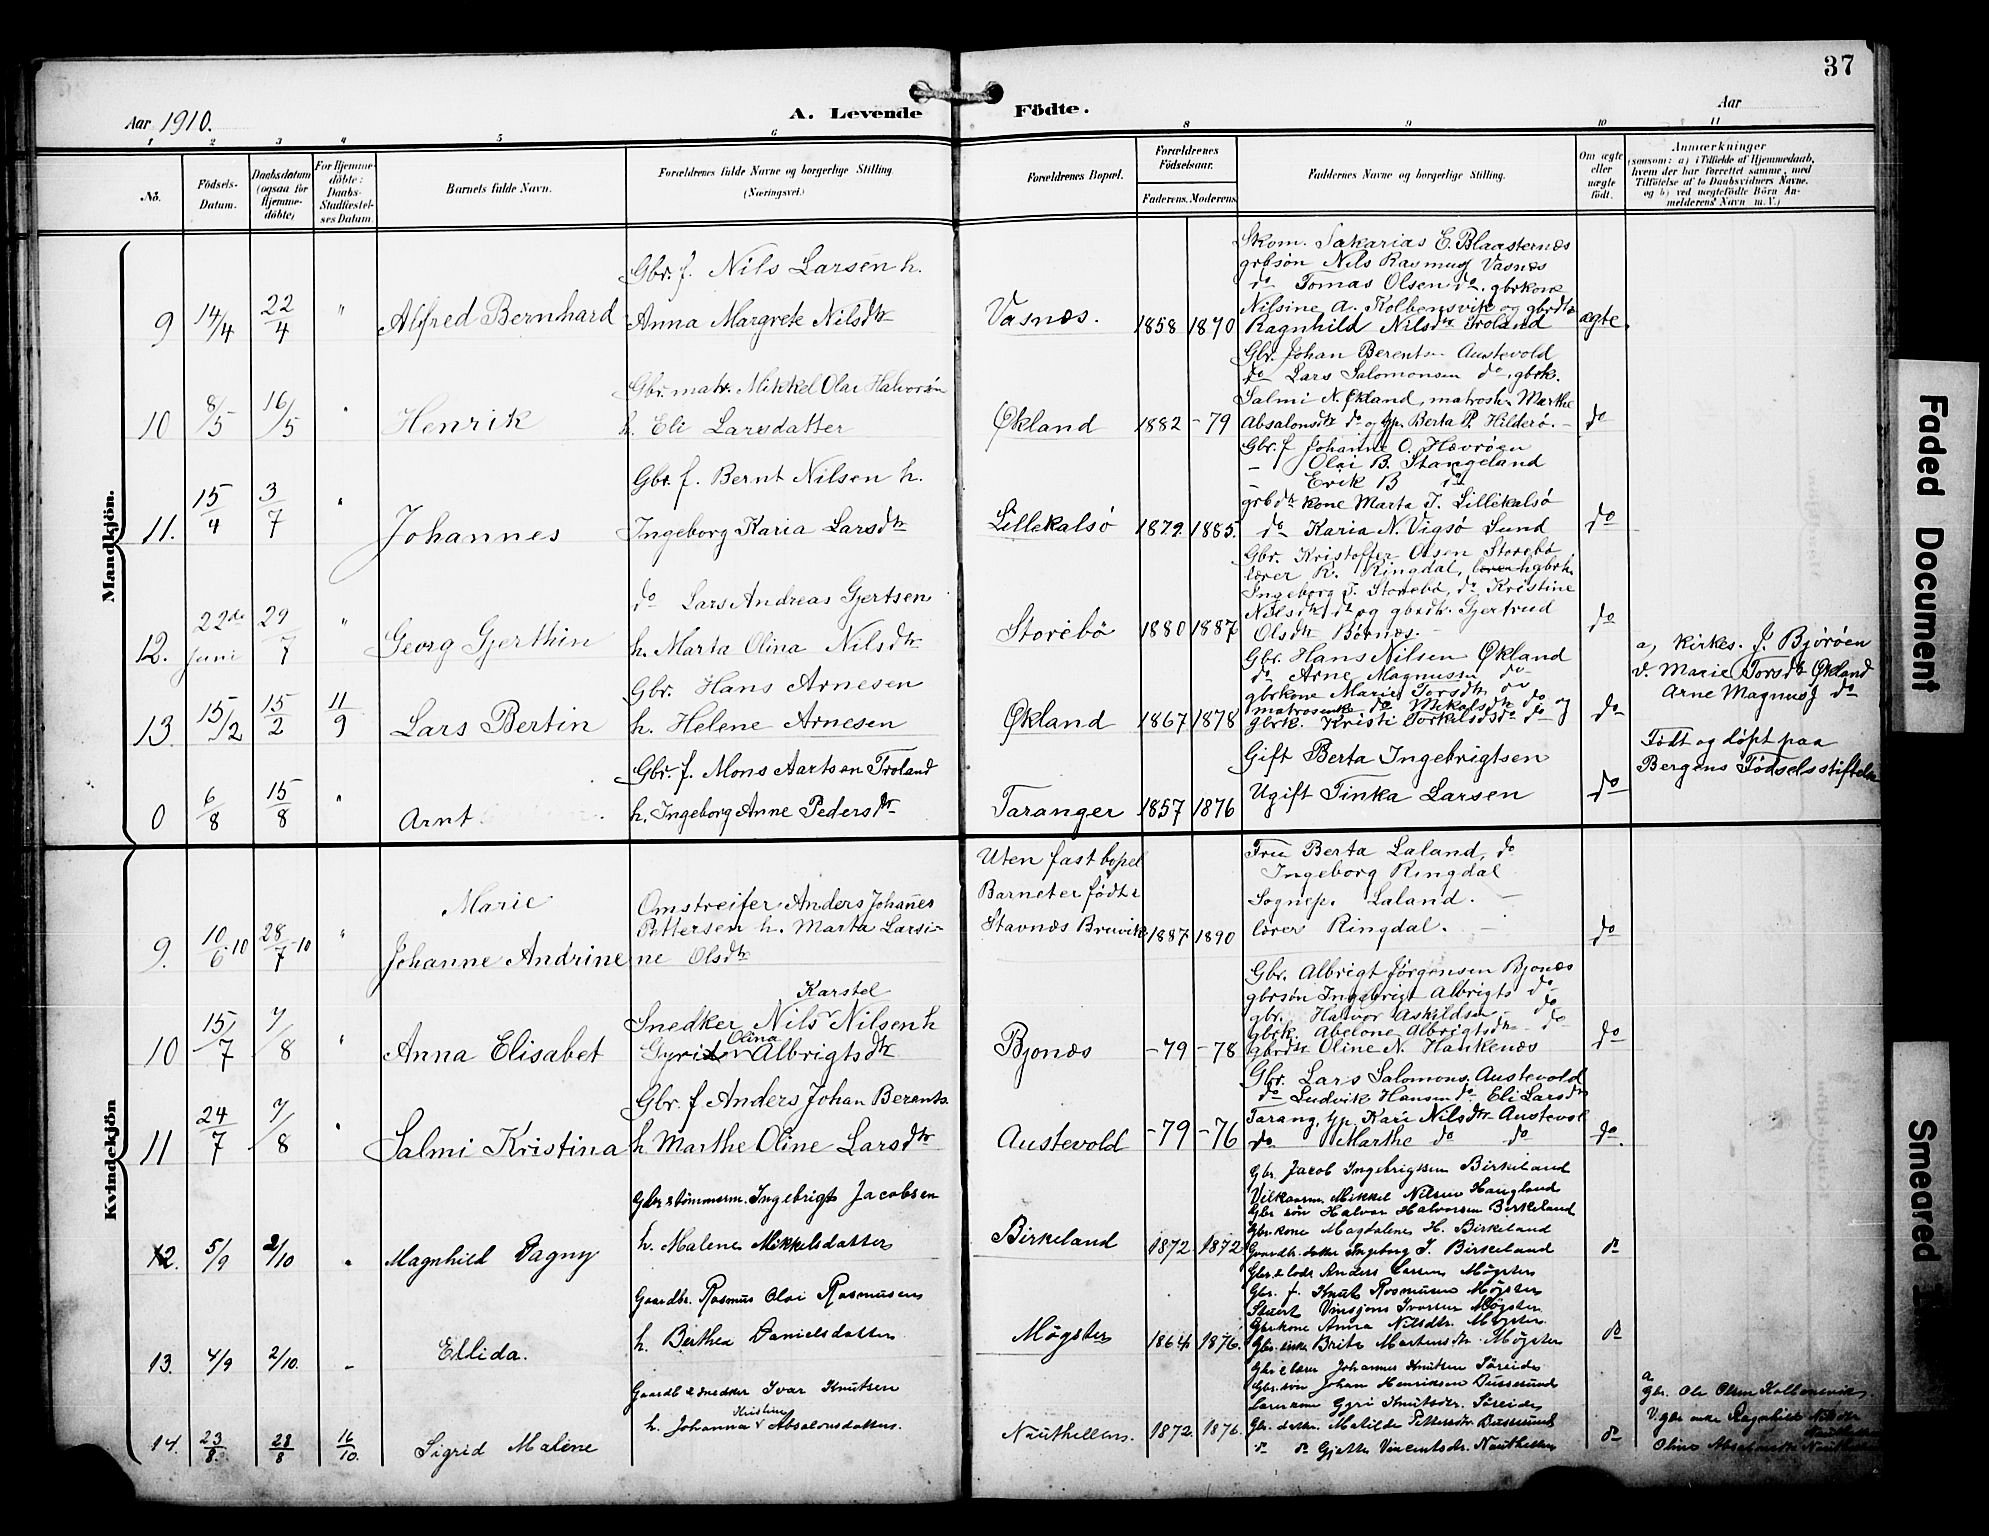 37
Aar 1910.
A. Levende Födte.
Aar
1 2 3 4 5 6 8 9 10 11
No.
Födsels-Datum.
Daabsdatum (ogsaa for Hjemme-döbte)
For Hjemme-döbte: Daabs-Stadfæstel-ses Datum.
Barnets fulde Navn.
Forældrenes fulde Navne og borgerlige Stilling.
(Næringsvei.)
Forældrenes Bopæl.
Forældrenes Födselsaar.
Faderens. Moderens.
Faddernes Navne og borgerlige Stilling.
Om ægte eller uægte födt.
Anmærkninger
(saasom: a) i Tilfælde af Hjemmedaab,
hvem der har forrettet samme, med
Tilföielse af to Daabsvidners Navne,
og b) ved uægtefödte Börn An-
melderens Navn m. V.)
Mandkjön.
9 14/4 22/4 " Alfred Bernhard
Gbr. f. Nils Larsen h.
Anna Margrete Nilsdtr
Vasnæs. 1858 1870
Skom. Sakarias E. Blaasternæs
grbsön Nils Rasmus Vasnæs
do Tomas Olsen do, gbrkone
Nilsine A. Kolbensvik og gbrdtr
Ragnhild Nilsdtr Troland
ægte.
10 8/5 16/5 " Henrik
Gbr. matr. Mikkel Olai Halvorsön
h. Eli Larsdatter
Økland 1882 -79
Gbr. Johan Berents. Austevold
do Lars Salomonsen do, gbrk.
Salmi N. Økland, matrosk. Marthe
Absalonsdtr do og gp. Berta P. Hilderö.
do
11. 15/4 3/7 " Johannes
Gbr. f. Bernt Nilsen h.
Ingeborg Karia Larsdtr
Lillekalsö 1879. 1885.
Gbr. f Johanne O. Hevröen
- Olai B. Stangeland
- Erik B do
grbdtr kone Marta J. Lillekalsö
do Karia N. Vigsö Sund
do
12. 22de Juni 29/7 " Georg Gjerthin
do Lars Andreas Gjertsen
h. Marta Olina Nilsdtr
Storebö 1880 1887
Gbr. Kristoffer Olsen Storebö
lærer R. Ringdal, gbrk.
Ingeborg J. Storebö, do Kristine
Nilsdtr do og gbrdtr. Gjertrud
Olsdtr Börnes.
do
13. 15/2 15/2 11/9 Lars Bertin
Gbr. Hans Arnesen
h. Helene Arnesen
Økland 1867 1878
Gbr. Hans Nilsen Økland
do Arne Magnussen do
gbrkone Marie Torsdtr do
matrosenke do Mikalsdtr do og
gbrk. Kristi Torkilsdsdtr do
do
a, Kirkes. J. Björöen
v. Marie Torsdtr Økland
Arne Magnus do
0 6/8 15/8 " Arnt
Gbr. f. Mons Aartsen Troland
h. Ingeborg Anne Pedersdtr
Taranger 1857 1876
Gift Berta Ingebrigtsen
Ugift Tinka Larsen
do
Född og döpt paa
Bergens Födselsstiftelse
Kvindekjön
9. 10/6 10 28/7 -10 " Marie
Johanne Andrine
Omstreifer Anders Johanes
Pettersen h. Marta Larsi-
ne Olsdtr
Uten fast bopel
Barnet er födt i
Stavnæs Brevik 1887 1890
Fru Berta Laland, do
Ingeborg Ringdal
Sognep. Laland.
lærer Ringdal.
do
10 15/7 7/8 " Anna Elisabet
Karstel
Snedker Nils Nilsen h
Olina
Gyri Albrigtsdtr
Bjonæs -79 -78
Gbr. Albrigt Jörgensen Bjonæs
gbrsön Ingebrigt Albrigts do
gbr. Halvor Askildsen do
gbrk. Abelone Albrigtsdtr do
gbrdtr Oline N. Haukenæs
do
11 24/7 7/8 " Salmi Kristina
Gbr. f Anders Johan Berents.
h. Marthe Oline Larsdtr
Austevold -79 -76
Gbr. Lars Salomons. Austevold
do Ludvik Hansen do Eli Larsdtr
Tarang. gp. Kari Nilsdtr Austevol
do Marthe do do
do.
12. 5/9 2/10 " Magnhild Dagny
Gbr & tömmerm. Ingebrigt Jacobsen
h. Malene Mikkelsdatter
Birkeland 1872. 1872
Gbr. Jacob Ingebrigtsen Birkeland
Vilkaarsm. Mikkel Nilsen Haugland
Gbr sön Halvor Halvorsen Birkeland
Gbrkone Magdalene H. Birkeland
Gaardb. datter Ingeborg I. Birkeland
do
13. 4/9 2/10. - Ellida.
Gaardbr. Rasmus Olai Rasmusen
h. Berthea Danielsdatter
Mögster 1864. 1876.
Gbr. & lods Anders Larsen Mögster
Gbr. f. Knut Rasmusen Mögster
Stuert Vinsjans Ivarsen Mögster
Gbrkone Anna Nilsdtr. Mögster
Gbr. enke Brite Martinsdtr. Mögster
do
14. 23/8. 28/8 16/10. Sigrid Malene
Gaardb & snedker Ivar Knutsen
Kristine
h. Johanna Absalonsdatter.
Nauthellen. 1872. 1876.
Gbr & lærer Johannes Knutsen Töreide
Gbr. sön Johan Henriksen Bussesund
Lærerkone Gyri Knutsdtr. Töreide
Gbr. datter Matilde Pettersdtr Bussesund
do do Gjette Vincentsdr. Nauthellen
do
a
Gbr. Ole Olsen Kolbensvik,
V. gbr enke Ragnhild Nilsdtr
Nauthellen
Oline Absalonsdtr Nauthellen
Faded Document
Smeared